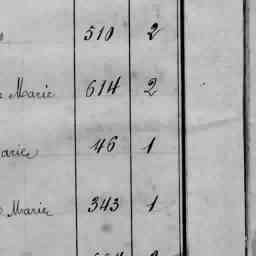 510 2
Marie 614 2
arie 46 1
Marie 343 1